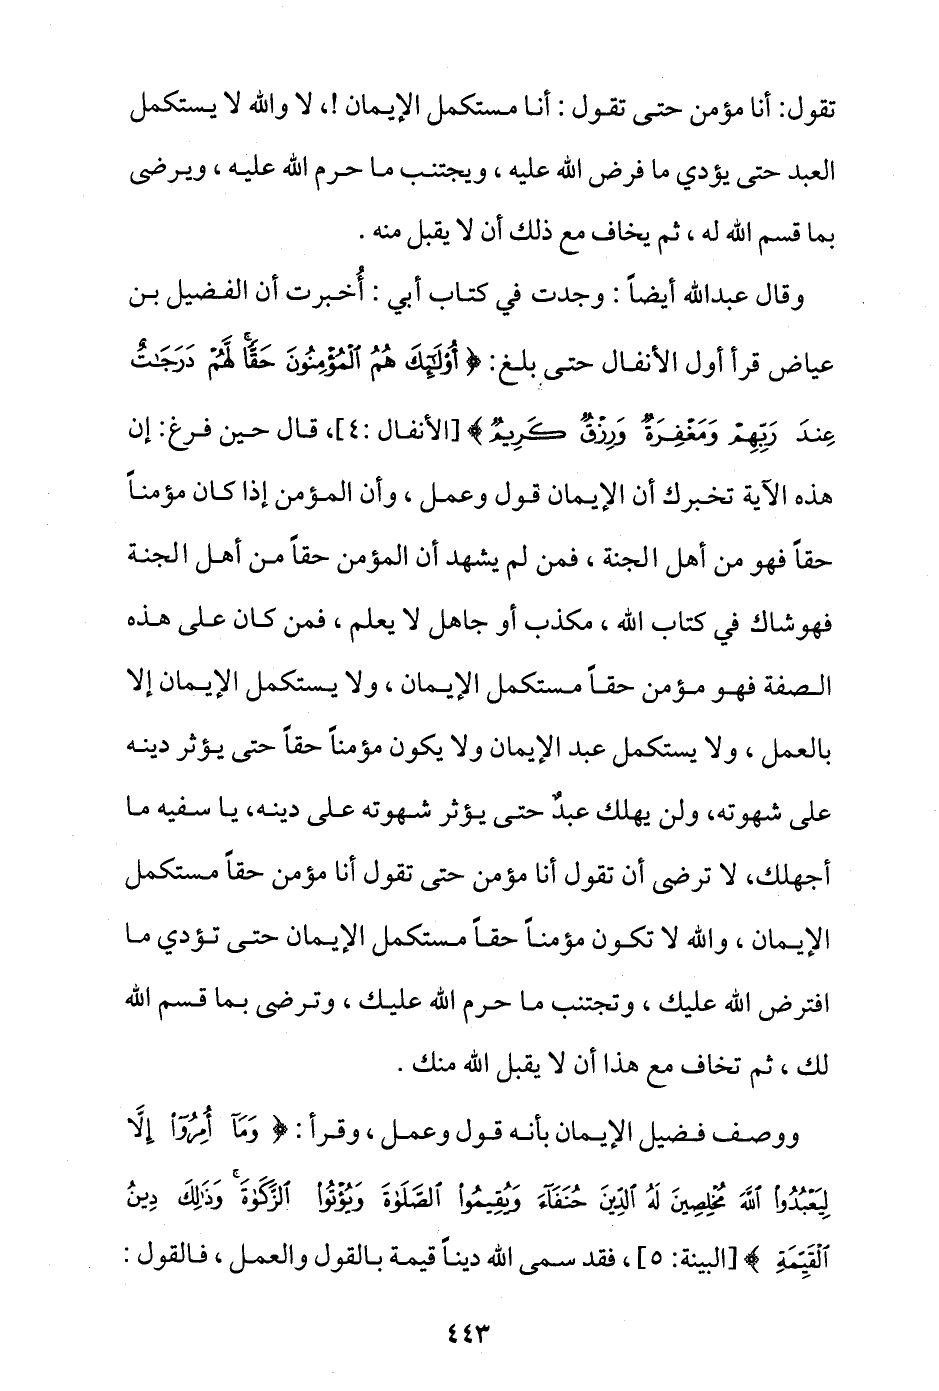 تقول: أنا مؤمن حتى تقول : أنا مستكمل الإيمان !، لا والله لا يستكمل
العبد حتى يؤدي ما فرض الله عليه ، ويجتنب ما حرم الله عليه ، ويرضى
بما قسم الله له ، ثم يخاف مع ذلك أن لا يقبل منه .
وقال عبدالله أيضاً : وجدت في كتاب أبي : أُخبرت أن الفضيل بن
عياض قرأ أول الأنفال حتى بلغ: ﴿ أُوْلَٰٓئِكَ هُمُ ٱلْمُؤْمِنُونَ حَقًّا ۚ لَّهُمْ دَرَجَٰتٌ
عِندَ رَبِّهِمْ وَمَغْفِرَةٌ وَرِزْقٌ كَرِيمٌ ﴾ [الأنفال :٤]، قال حين فرغ: إن
هذه الآية تخبرك أن الإيمان قول وعمل ، وأن المؤمن إذا كان مؤمناً
حقاً فهو من أهل الجنة ، فمن لم يشهد أن المؤمن حقاً من أهل الجنة
فهو شاك في كتاب الله ، مكذب أو جاهل لا يعلم ، فمن كان على هذه
الصفة فهو مؤمن حقاً مستكمل الإيمان ، ولا يستكمل الإيمان إلا
بالعمل ، ولا يستكمل عبد الإيمان ولا يكون مؤمناً حقاً حتى يؤثر دينه
على شهوته، ولن يهلك عبدٌ حتى يؤثر شهوته على دينه، يا سفيه ما
أجهلك، لا ترضى أن تقول أنا مؤمن حتى تقول أنا مؤمن حقاً مستكمل
الإيمان ، والله لا تكون مؤمناً حقاً مستكمل الإيمان حتى تؤدي ما
افترض الله عليك ، وتجتنب ما حرم الله عليك ، وترضى بما قسم الله
لك ، ثم تخاف مع هذا أن لا يقبل الله منك .
ووصف فضيل الإيمان بأنه قول وعمل ، وقرأ : ﴿ وَمَآ أُمِرُوٓاْ إِلَّا
لِيَعْبُدُواْ ٱللَّهَ مُخْلِصِينَ لَهُ ٱلدِّينَ حُنَفَآءَ وَيُقِيمُواْ ٱلصَّلَوٰةَ وَيُؤْتُواْ ٱلزَّكَوٰةَ ۚ وَذَٰلِكَ دِينُ
ٱلْقَيِّمَةِ ﴾ [البينة: ٥] ، فقد سمى الله ديناً قيمة بالقول والعمل ، فالقول :
٤٤٣